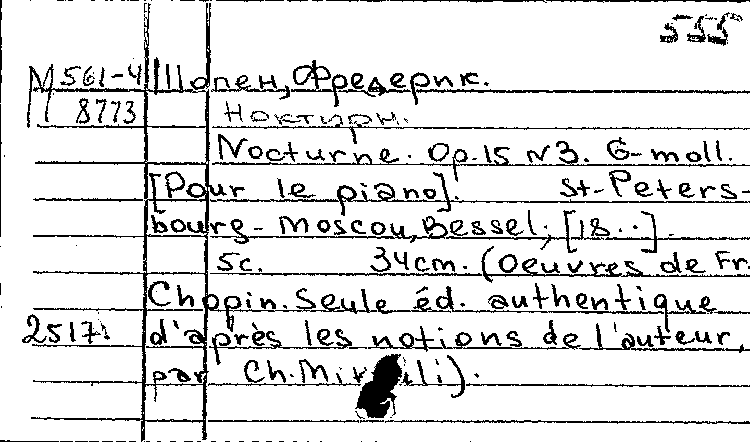 555
М 561-4 Шопен, Фредерик.
8773 Ноктюрн.
Nocturne. Op.15 N3. G-moll.
[Pour le piano]. St-Peters-
bourg-Moscou, Bessel, [18..].
5c. 34cm. (Oeuvres de Fr.
Chopin. Seule éd. authentique
2517. d'après les notions de l'auteur,
par Ch. Mikuli).